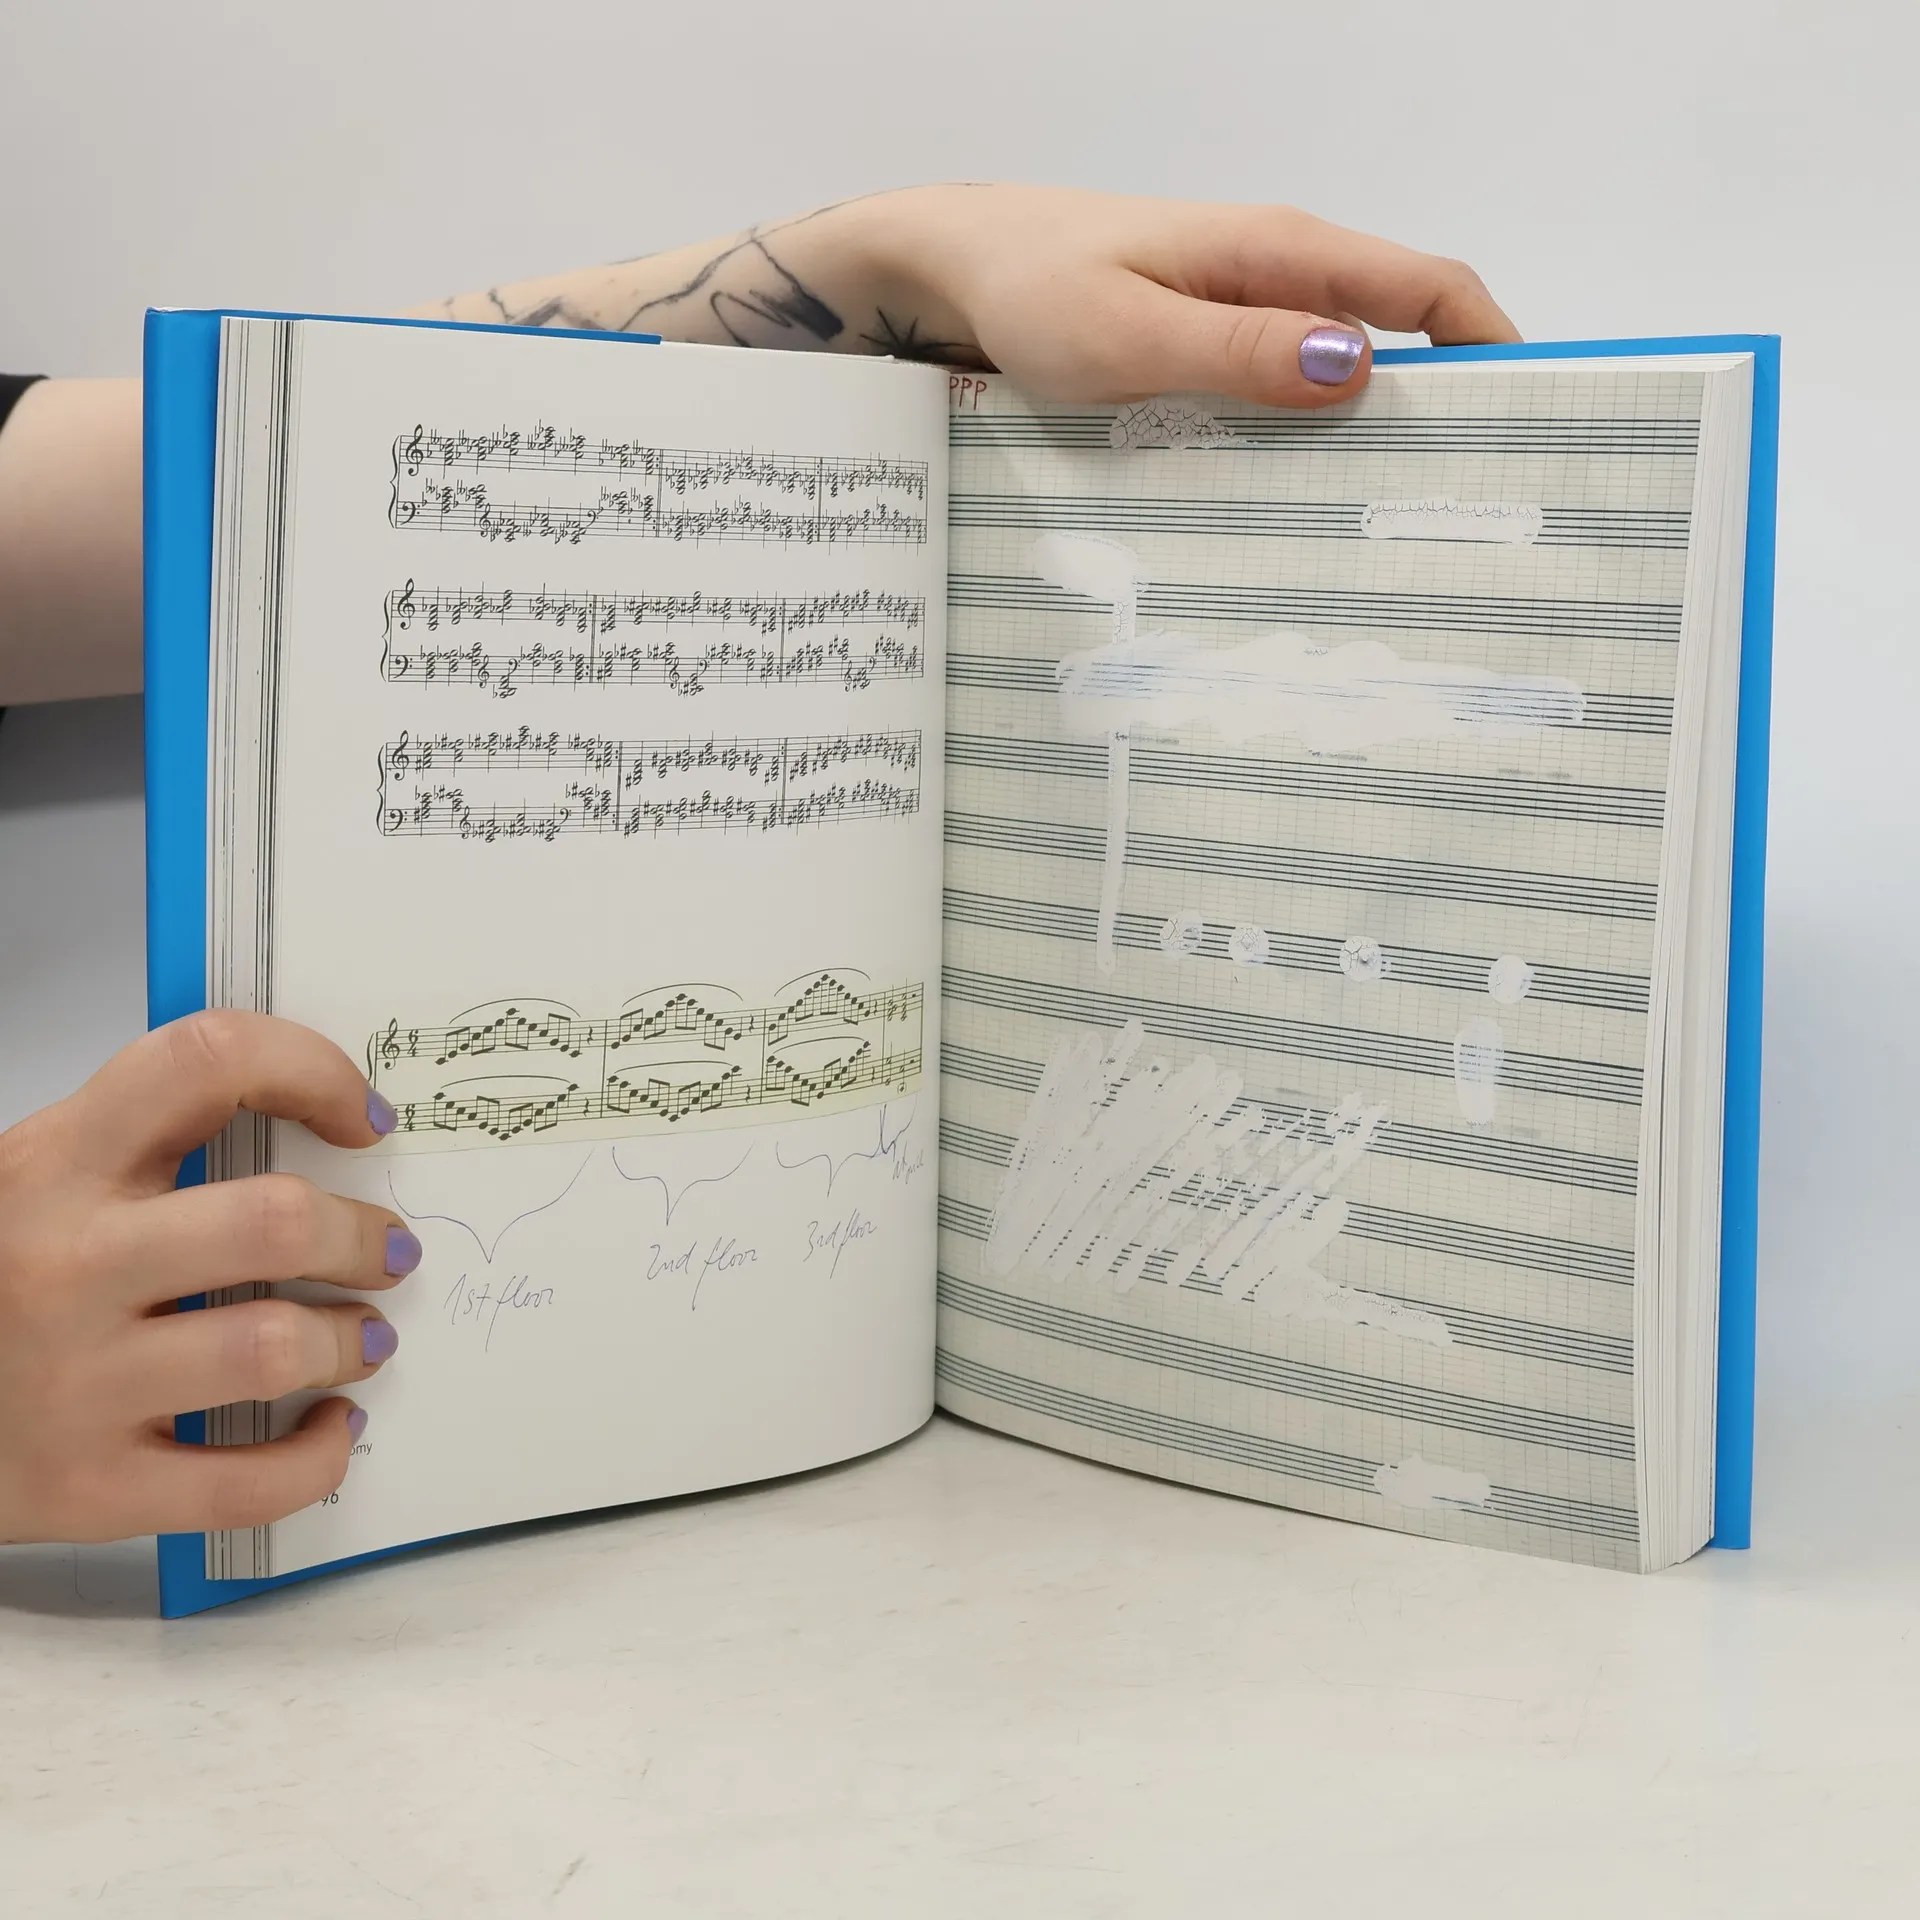 6
4
6
4
1st floor
2nd floor
3rd floor
omy
96
PPP